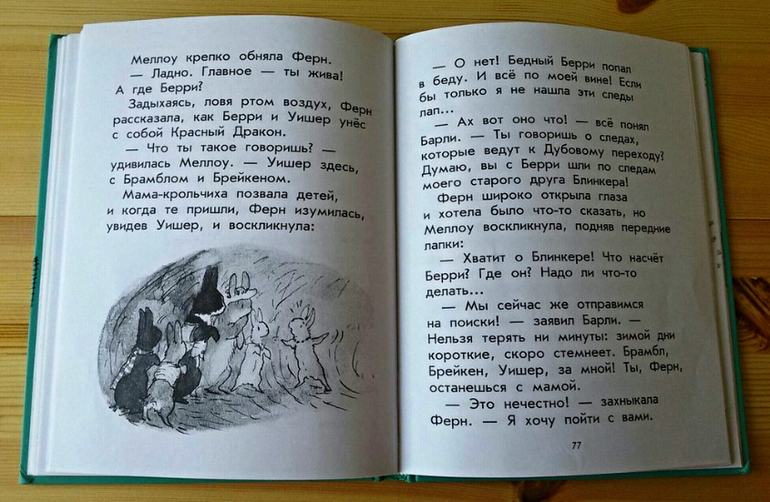 Меллоу крепко обняла Ферн.
— Ладно. Главное — ты жива!
А где Берри?
Задыхаясь, ловя ртом воздух, Ферн
рассказала, как Берри и Уишер унёс
с собой Красный Дракон.
— Что ты такое говоришь? —
удивилась Меллоу. — Уишер здесь,
с Брамблом и Брейкеном.
Мама-крольчиха позвала детей,
и когда те пришли, Ферн изумилась,
увидев Уишер, и воскликнула:
— О нет! Бедный Берри попал
в беду. И всё по моей вине! Если
бы только я не нашла эти следы
лап...
— Ах вот оно что! — всё понял
Барли. — Ты говоришь о следах,
которые ведут к Дубовому переходу?
Думаю, вы с Берри шли по следам
моего старого друга Блинкера!
Ферн широко открыла глаза
и хотела было что-то сказать, но
Меллоу воскликнула, подняв передние
лапки:
— Хватит о Блинкере! Что насчёт
Берри? Где он? Надо ли что-то
делать...
— Мы сейчас же отправимся
на поиски! — заявил Барли. —
Нельзя терять ни минуты: зимой дни
короткие, скоро стемнеет. Брамбл,
Брейкен, Уишер, за мной! Ты, Ферн,
останешься с мамой.
— Это нечестно! — захныкала
Ферн. — Я хочу пойти с вами.
77